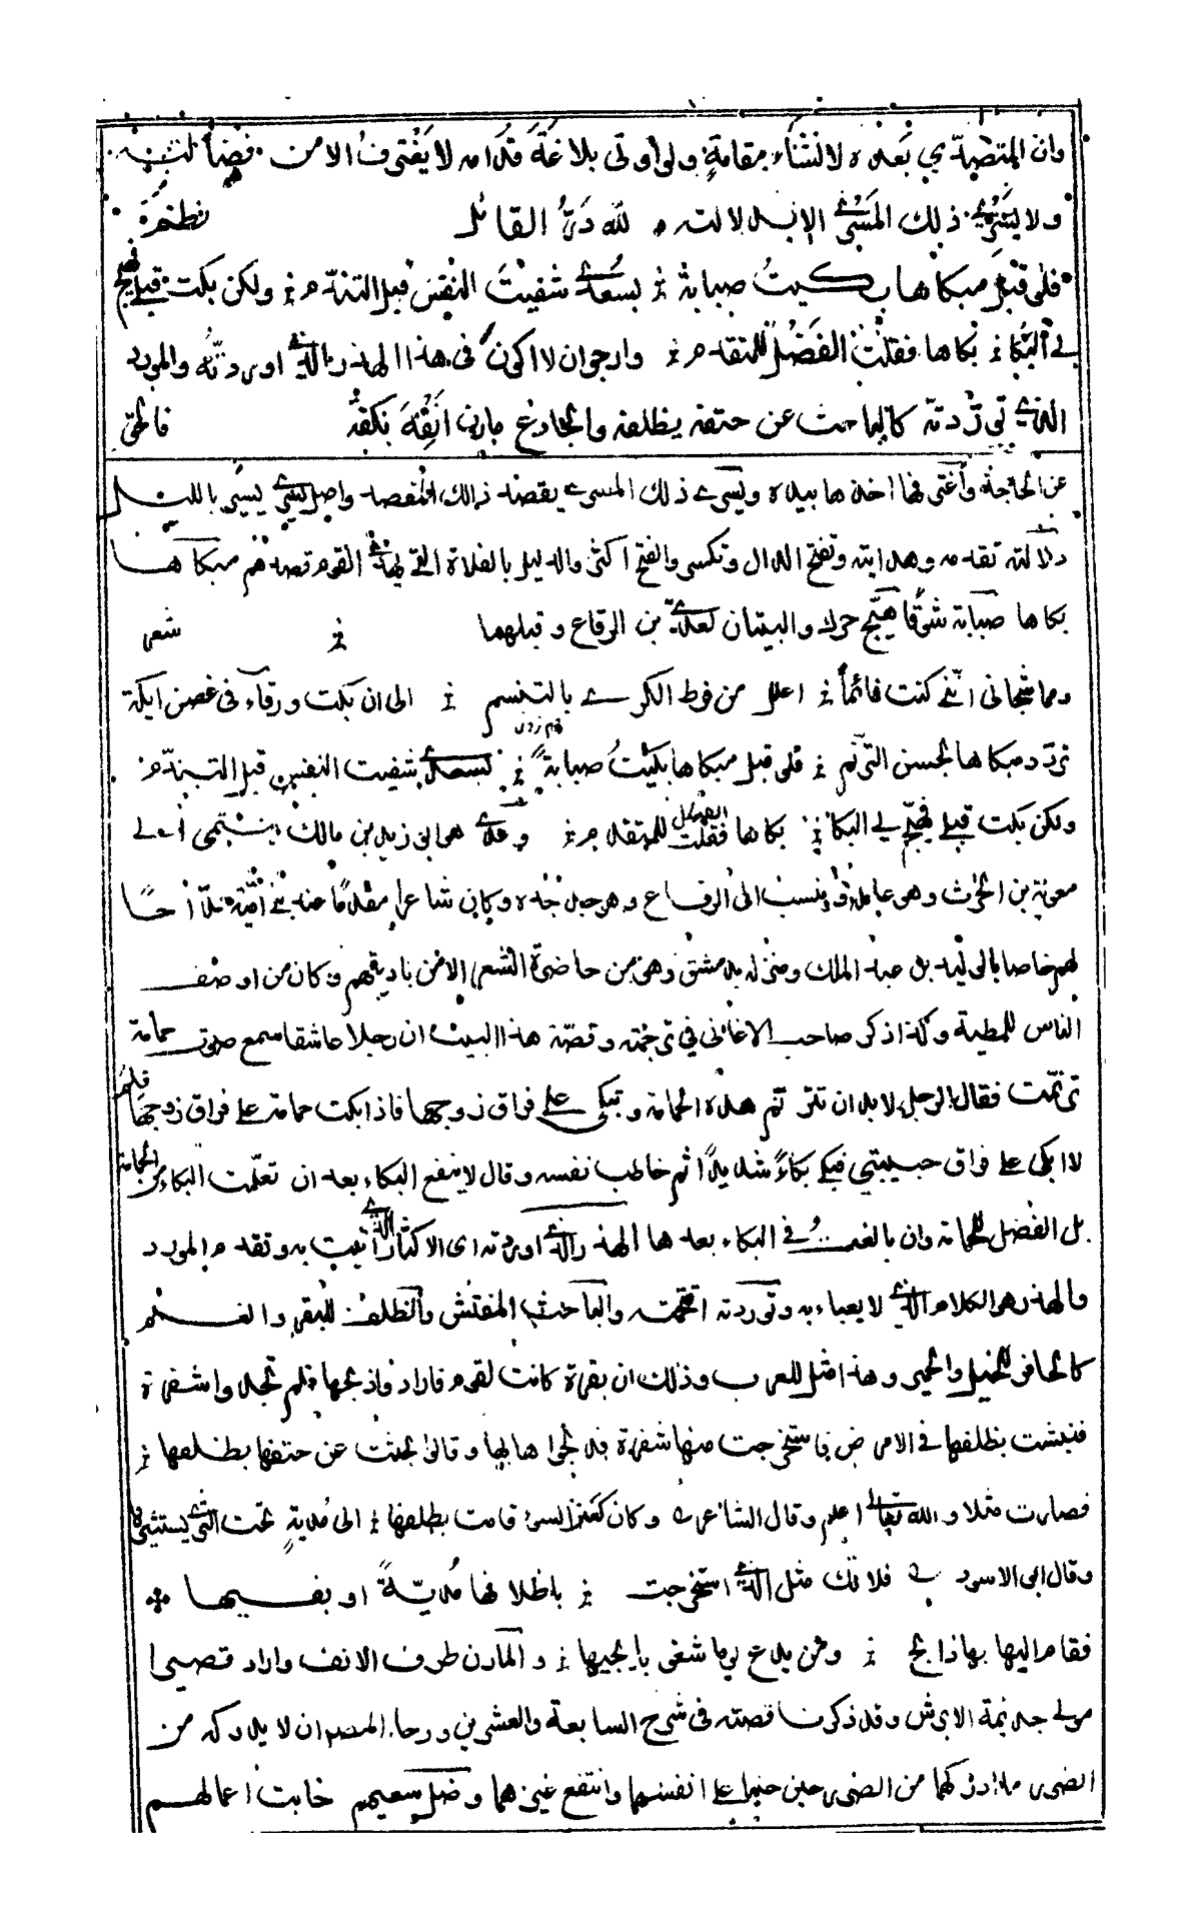 وان المتصدي بعده لانشاء مقامة ولو اوتي بلاغة قدامه لا يغترف الا من فضالته
ولا يسري ذلك المسرى الا بدلالته ولله در القائل نظم
فلو قبل مبكاها بكيت صبابة بسعدى شفيت النفس قبل التندم ولكن بكت قبلي فهيج
لي البكا بكاها فقلت الفضل للمتقدم وارجو ان لا اكون في هذا الهذر الذي اوردته والمورد
الذي توردته كالباحث عن حتفه بظلفه والجادع مارن انفه بكفه فالحق
دلالته تقدمه وهدايته وتفتح الدال وتكسر والفتح اكثر والدليل بالفلاة الذي يهدي القوم قصدهم مبكاها
بكاها صبابة شوقا هيج حرك والبيتان لعدي بن الرقاع وقبلهما شعر
ومما شجاني انني كنت نائما اعلل من فرط الكرى بالتنسم الى ان بكت ورقاء في غصن ايكة
تردد مبكاها لحسن الترنم فلو قبل مبكاها بكيت صبابة بسعدى شفيت النفس قبل التندم
ولكن بكت قبلي فهيج لي البكا بكاها فقلت الفضل للمتقدم وعدي هو ابن زيد بن مالك
معوية بن الحرث وهو عاملة وينسب الى الرقاع وهو جد جده وكان شاعرا مقدما عند بني امية مداحا
لهم خاصا بالوليد بن عبد الملك ومنزله بدمشق وهو من حاضرة الشعراء لا من باديتهم وكان من اوصف
الناس للمطية وكذا ذكر صاحب الاغاني في ترجمته وقصة هذا البيت ان رجلا عاشقا سمع صوت حمامة
ترنمت فقال الرجل لا بد ان تترنم هذه الحمامة وتبكي على فراق زوجها فاذا بكت حمامة على فراق زوجها فلم
لا ابكي على فراق حبيبتي فبكى بكاء شديدا ثم خاطب نفسه وقال لا ينفع البكاء بعد ان تعلمت البكاء من الحمامة
بل الفضل للحمامة وان بالغت في البكاء بعدها الهذر الذي اوردته اي الاكثار الذي اتيت به وتقدم المورد
والهذر هو الكلام الذي لا يعباء به وتوردته اقتحمته والباحث المفتش والظلف للبقر والغنم
كالحافر للخيل والحمير وهذا مثل للعرب وذلك ان بقرة كانت لقوم فارادوا ذبحها فلم تجدوا شفرة
فنبشت بظلفها في الارض فاستخرجت منها شفرة فذبحوها بها وقالوا بحثت عن حتفها بظلفها
فصارت مثلا والله تعالى اعلم وقال الشاعر وكان كعنز السوء قامت بظلفها الى مدية تحت الثرى تستثيرها
وقال ابو الاسود فلا تك مثل الذي استخرجت باظلافها مدية او بفيها
فقام اليها بها ذابح ومن يدع يوما شعوبا يجيها والمارن طرف الانف واراد قصيرا
مولى جذيمة الابرش وقد ذكرنا قصته في شرح السابعة والعشرين
الضرر ما ادركهما من الضرر حين جنيا على انفسهما وانتفع غيرهما وضل سعيهم خابت اعمالهم